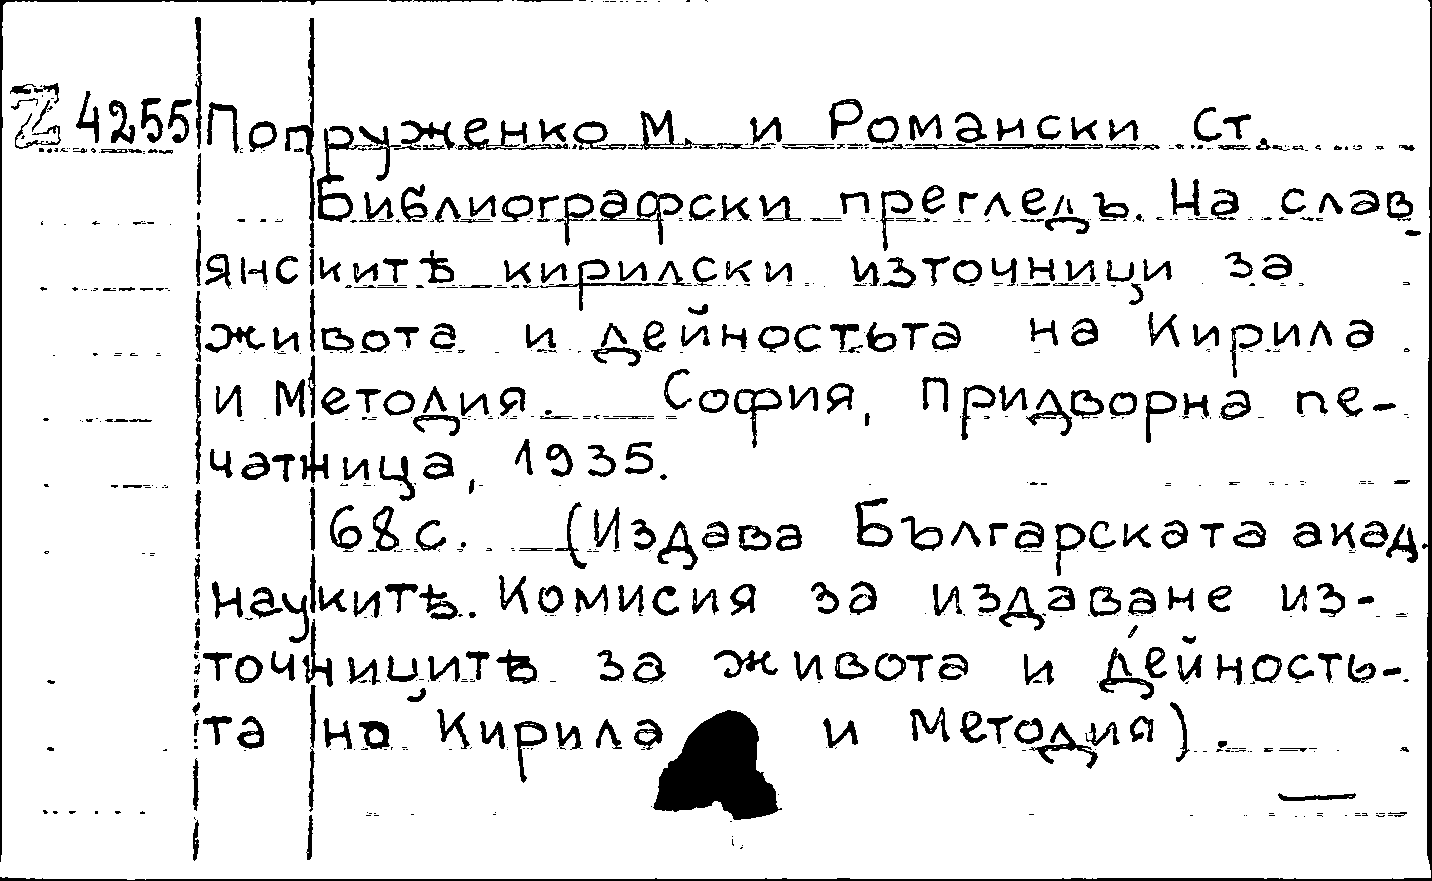 Z 4255 Попруженко М. и Романски Ст.
Библиографски прегледъ. На слав-
янскитѣ кирилски източници за
живота и дейностьта на Кирила
и Методия. София, Придворна пе-
чатница, 1935.
68 с. (Издава Българската акад.
наукитѣ. Комисия за издаване из-
точницитѣ за живота и дейность-
та на Кирила и Методия).